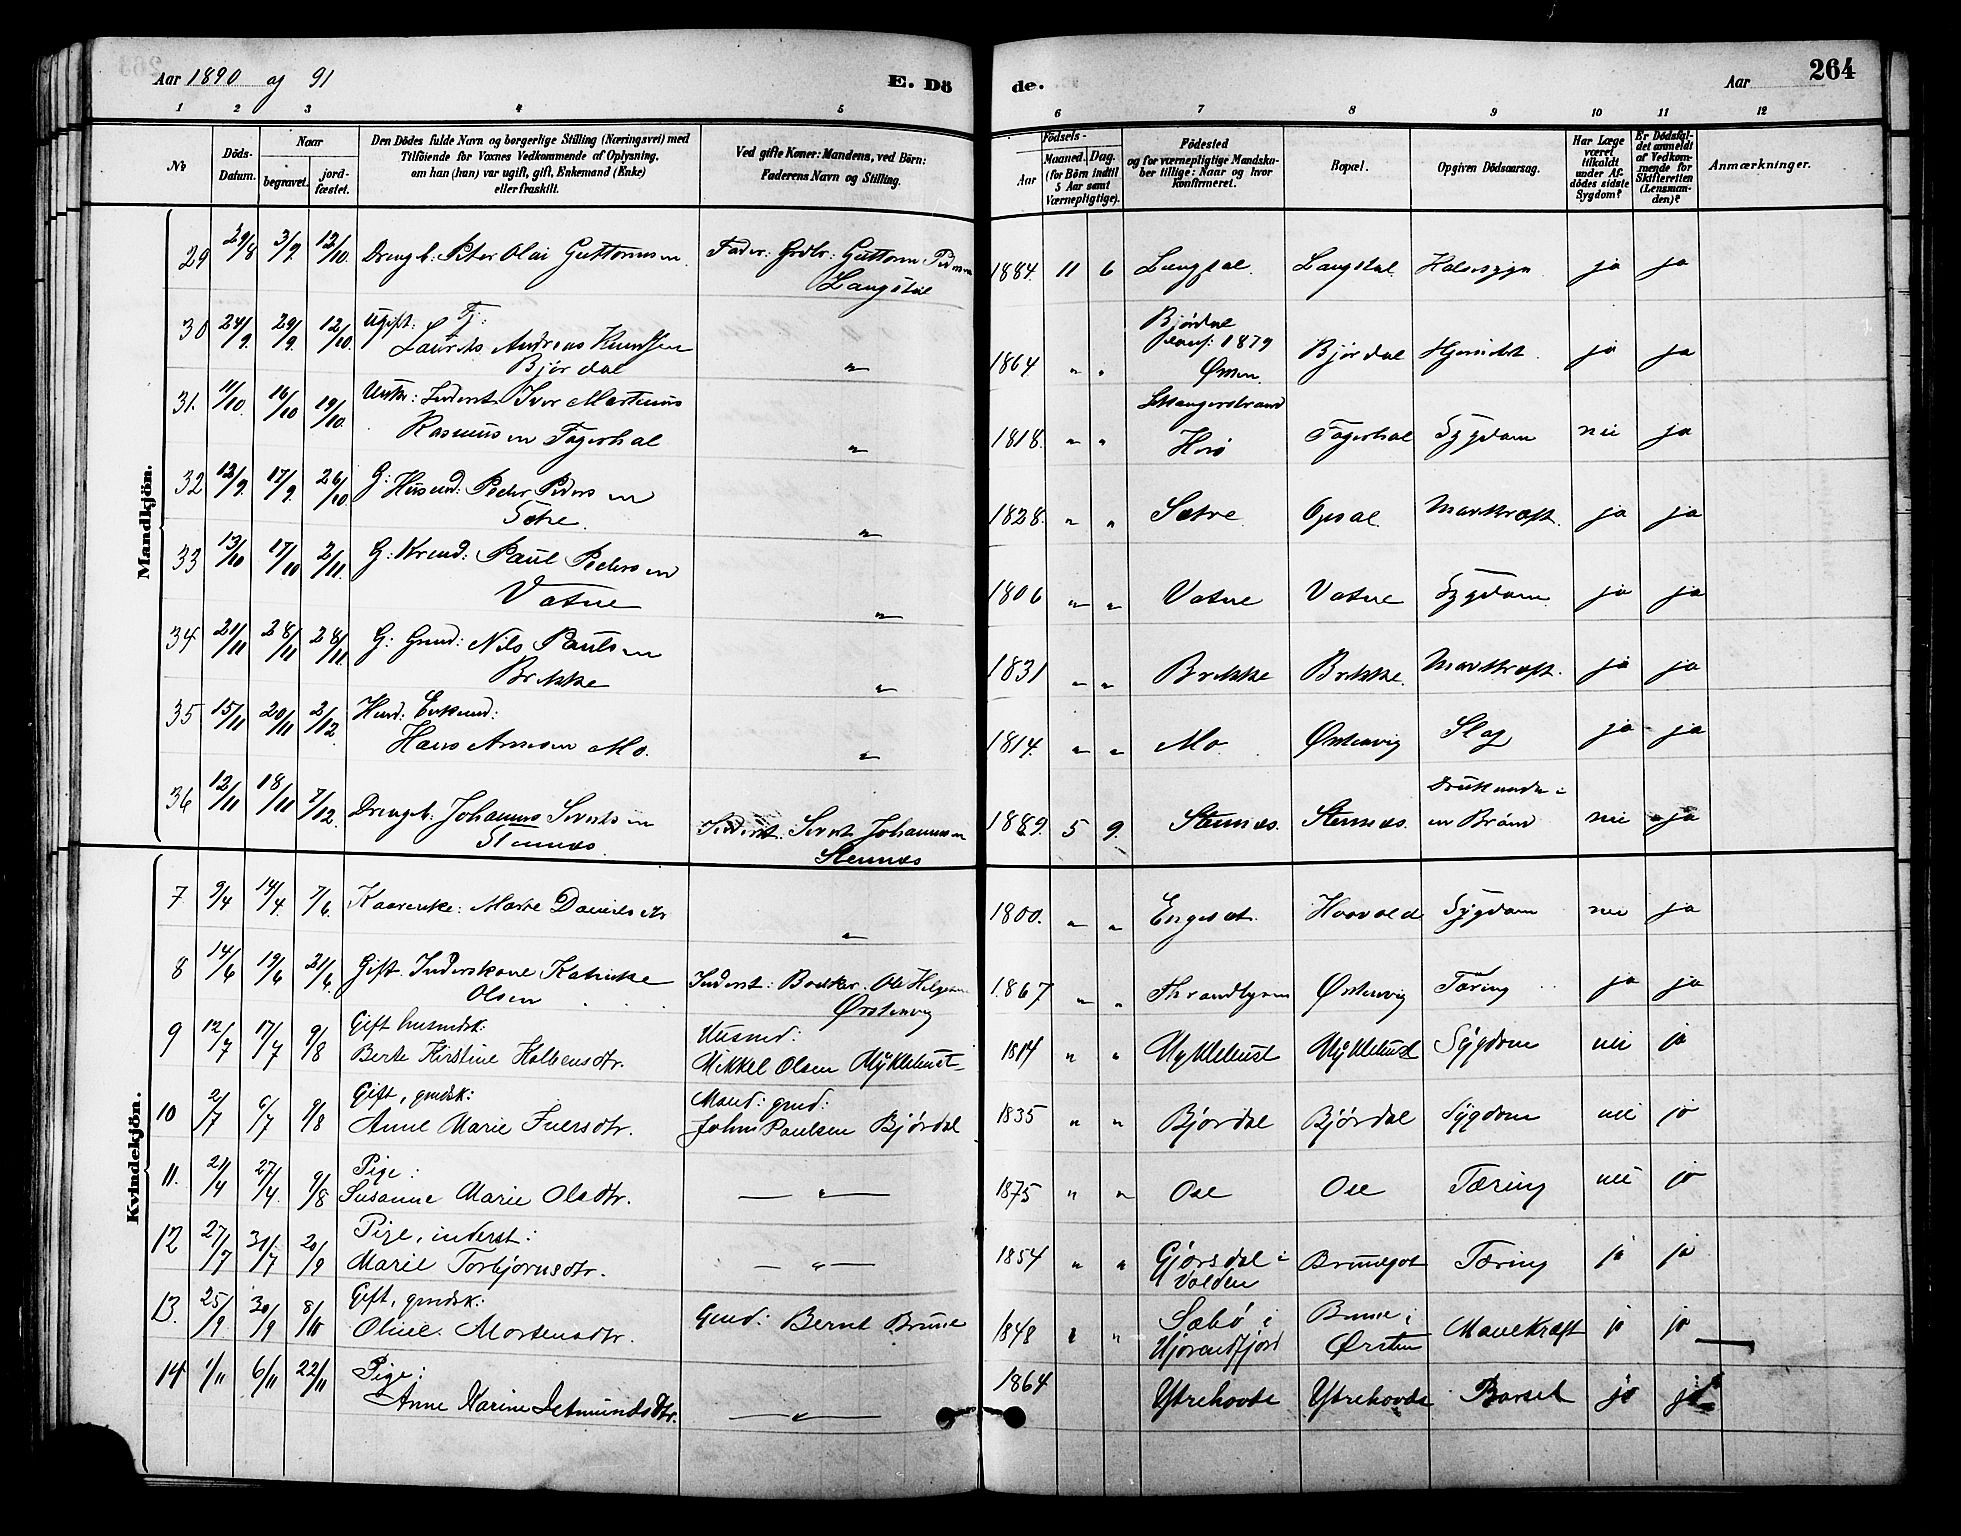 Aar 1890 og 91
E. Dö
de.
Aar
264
1 2 3 4 5 6 7 8 9 10 11 12
No
Döds-
Datum.
Naar
begravet.
jord-
fæstet.
Den Dödes fulde Navn og borgerlige Stilling (Næringsvei) med
Tilföiende for Voxnes Vedkommende af Oplysning,
om han (hun) var ugift, gift, Enkemand (Enke)
eller fraskilt.
Ved gifte Koner: Mandens, ved Börn:
Faderens Navn og Stilling.
Födsels-
Aar
Maaned. Dag.
(for Börn indtil
5 Aar samt
Værnepligtige).
Födested
og for værnepligtige Mandska-
ber tillige: Naar og hvor
Konfirmeret.
Bopæl.
Opgiven Dödsaarsag.
Har Læge
været
tilkaldt
under Af-
dödes sidste
Sygdom?
Er Dödsfal-
det anmeldt
af Vedkom-
mende for
Skifteretten
(Lensman-
den)?
Anmærkninger.
Mandkjön.
29 29/8 3/9 12/10. Drengb. Peter Olai Guttormsen Fader: Grdbr: Guttorm Pedersen
Langstøl
1884. 11 6 Langstøl. Langstøl. Halssyge ja ja
30 24/9. 29/9. 12/10 Ugift: Tj:
Laurits Andreas Knudsen
Bjørdal "
1864 " " Bjørdal
konf: 1879
Ørsten. Bjørdal ja ja
31. 11/10. 16/10 19/10. Inderst. Iver Martinus
Rasmussen Fagerhol "
1818. " " Fagerhol Sygdom nei ja
32 12/9. 17/9. 26/10 G: Husmd: Peder Pedersen
Sætre. "
1828. " " Sætre. Opsal. Mavekræft. ja ja
33 13/10 17/10 2/11. G: Paul Pedersen
Vatne "
1806 " " Vatne Vatne Sygdom. ja ja
34 21/11 28/11 28/11. G: Grmd: Nils Paulsen
Brekke "
1831 " " Brekke Brekke. Mavekræft. ja ja
35 15/11 20/11 2/12. Husd: Enkemd:
Hans Arnesen Mo. "
1814. " " Mo. Ørstenvig Slag ja ja
36 12/11 18/11 7/12. Drengb: Johannes Sivertsen
Stennes. Inderst. Sivert Johannesen
Stennes
1889. 5 9. Stennes. Stennes. Druknede i
en Brønd nei ja
Kvindekjön.
7 9/4 14/4. 7/6. Marte Danielsdtr "
1800. " " Engeset. Hovold Sygdom nei ja
8 14/6 19/6 21/6. Gift. Inderskone Katrine
Olsen Inderst: Bødker. Ole Helgesen
Ørstenvig
1867 " " Throndhjem Ørstenvig Tæring ja ja
9 12/7 17/7 9/8 Gift husmdsk:
Berte Kirstine Halvensdtr. Husmd:
Mikkel Olsen Myklebust
1814 " " Myklebust Myklebust Sygdom nei ja
10 2/7 6/7 9/8 Gift, gmdsk:
Anne Marie Iversdtr. Mand: gmd:
John Paulsen Bjørdal
1835 " " Bjørdal Bjørdal Sygdom nei jo
11. 21/4 27/4. 9/8 Pige:
Susanne Marie Olsdtr. — " —
1875 " " Ose Ose Tæring nei jo
12 27/7 31/7 20/9 Pige, inderst:
Marie Torbjørnsdtr. — " —
1854 " " Gjørsdal i
Volden Brunegot Tæring ja ja
13. 25/9 30/9 8/10 Gift, gmdsk:
Oline Mortensdtr. Gmd: Bernt Brune
1848 " " Sæbø i
Hjørendfjord Brune i
Ørsten Mavekræft jo jo
14 1/11 6/11 22/11 Pige:
Anne Karine Jetmundsdtr. — " —
1864 Ytrehovde Ytrehovde Barsel jo jo